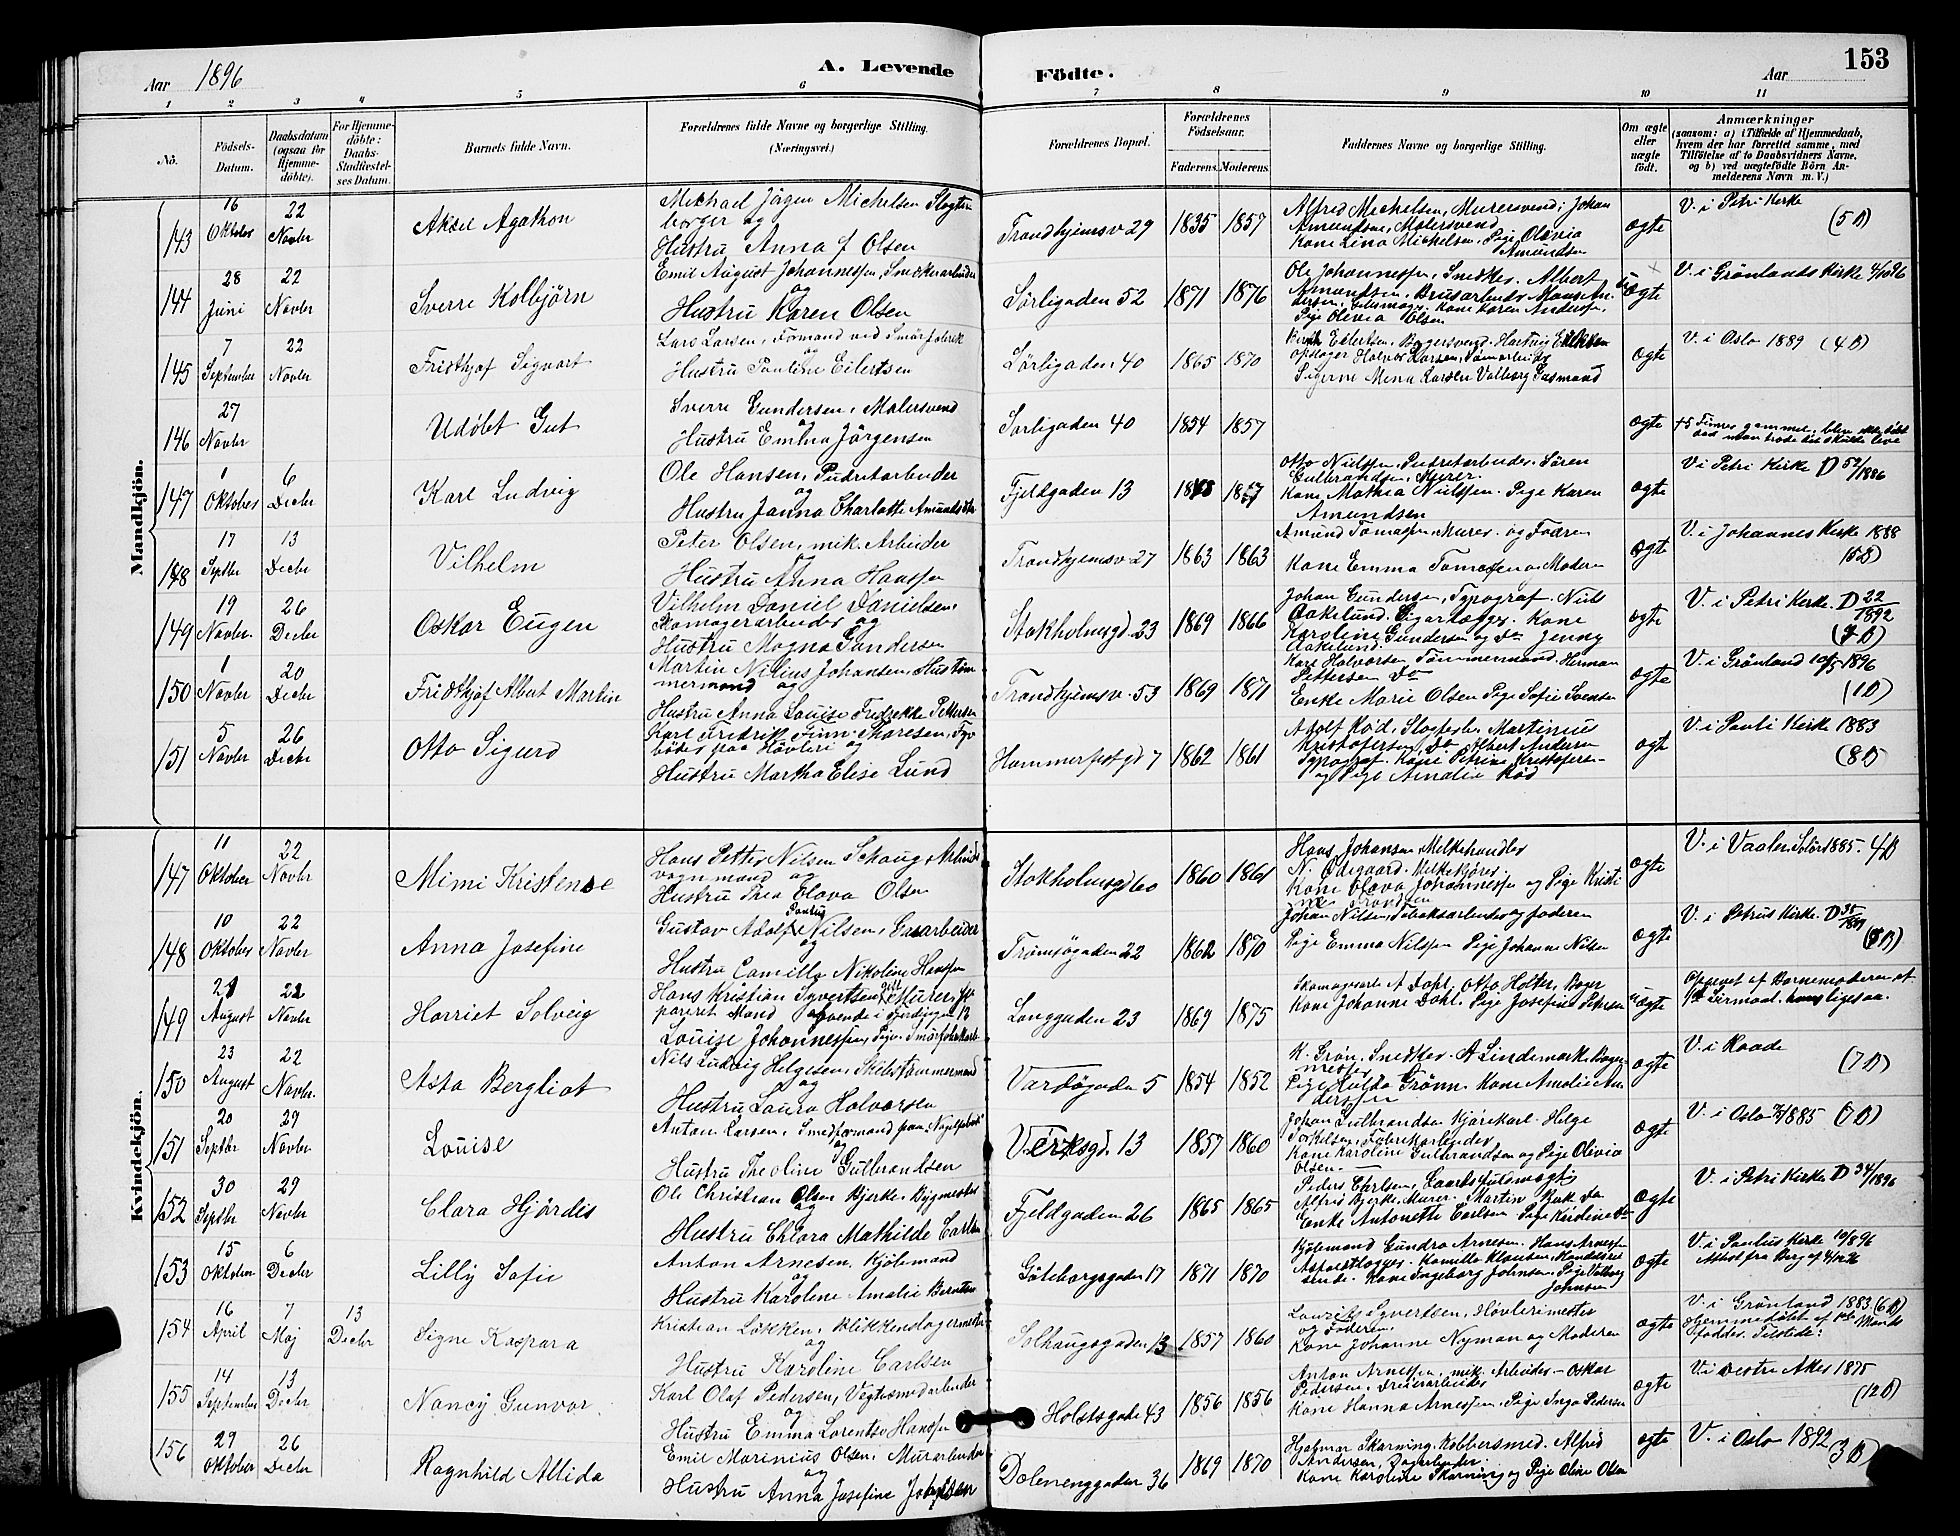 Aar 1896
A. Levende Födte.
Aar
153
1 2 3 4 5 6 7 8 9 10 11
No.
Födsels-Datum.
Daabsdatum (ogsaa for Hjemmedöbte).
For Hjemmedöbte: Daabs-Stadfæstelses Datum.
Barnets fulde Navn.
Forældrenes fulde Navne og borgerlige Stilling. (Næringsvei.)
Forældrenes Bopæl.
Forældrenes Födselsaar.
Faderens. Moderens.
Faddernes Navne og borgerlige Stilling.
Om ægte eller uægte födt.
Anmærkninger
(saasom: a) i Tilfælde af Hjemmedaab, hvem der har forrettet samme, med Tilföielse af to Daabsvidners Navne, og b) ved uægtefödte Börn Anmelderens Navn m. V.)
Mandkjön.
143 16 Oktober 22 Novbr Aksel Agathon
Michael Jörgen Michelsen
og
Hustru Anna f Olsen
Trondhjemsv 29 1835 1857
Alfred Michelsen, Murersvend; Johan
Amundsen, Malersvend
Kone Lina Michelsen, Pige Olivia
Amundsen
ægte V. i Petri Kirke (5 B)
144 28 Juni 22 Novbr Sverre Kolbjörn
Emil August Johannessen, Snedkerarbeider
og
Hustru Karen Olsen
Sørligaden 52 1871 1876
Ole Johannessen, Snedker. Albert
Amundsen
Pige Olivia Olsen
uægte V. i Grönlands Kirke 4/10 96
145 7 September 22 Novbr Fridthjof Sigvart
Lars Larsen, Formand ved Smörfabrik
og
Hustru Pauline Eilertsen
Sørligaden 40 1865 1870
Eilertsen, Bagersvend. Hartvig
Halvor Larsen
Mina Larsen Valborg
ægte V. i Oslo 1889 (4 B)
146 27 Novbr Udøbt Gut
Sverre Gundersen, Malersvend
og
Hustru Emma Jörgensen
Sørligaden 40 1854 1857
ægte + 5 Timer gammel, blev ikke döbt
da man trode det skulde leve
147 1 Oktober 6 Decbr Karl Ludvig
Ole Hansen, Pudretarbeider
og
Hustru Janna Charlotte Amundsdtr
Fjeldgaden 13
Otto Nielssen, Pudretarbeider, Sören
Gulbrandsen, Murer.
Kone Mathea Nielssen. Pige Karen
Amundsen
ægte V i Petri Kirke D 52/1886
148 17 Septbr 13 Decbr Vilhelm
Peter Olsen, mek. Arbeider
og
Hustru Anna Hanssen
Trondhjemsv 27 1863 1863
Amund Tomassen, Murer. og Faderen
Kone Emma Tomassen og Moderen
ægte V. i Johannes Kirke 1888
(5 B)
149 19 Novbr. 26 Decbr Oskar Eugen
Vilhelm Daniel Danielsen,
Skomagerarbeider og
Hustru Magna Gundersen
Stokholmsgd 23 1869 1866
Johan Gundersen, Typograf. Niels
Aakelund. Kone
Karoline Gundersen og Do Jenny
Aakelund.
ægte V. i Petri Kirke. D 22/1892
150 1 Novbr 20 Decbr Fridthjof Albert Martin
Martin Nilius Johansen, Hustömmermand og
Hustru Anna Louise Fredrikke Pettersen
Trondhjemsv. 53 1869 1871
Karl Halvorsen Tömmermand. Herman
Pettersen Do
Enke Marie Olsen Pige Sofie Svensen
ægte V. i Grönland 1896
(1 B)
151 5 Novbr 26 Decbr Otto Sigurd
Karl Fredrik Finn Thoresen, Fyrböder paa Hövleri og
Hustru Martha Elise Lund
Hammerfestgd 7 1862 1861
Adolf Röd, Martinius
Kristofersen, Do Albert Andersen
Typograf. Kone Petrine Kristofersen
og Pige Amalie Röd
ægt V. i Pauli Kirke 1883
(8 B)
Kvindekjön.
147 11 Oktober 22 Novbr Mimi Kristense
Hans Petter Nilsen Schaug, Arbeidsvognmand og
Hustru Thea Olava Olsen
Stokholmsgd 60 1860 1861
Hans Johansen, Melkehandler
N. Ödegaard. Melkekjörer.
Kone Olava Johannessen og Pige Kristine
ægte V. i Vaaler, Solör 1885. 4 B
148 10 Oktober 22 Novbr Anna Josefine
Gustav Adolf Nilsen, Gasarbeider
og
Hustru Camilla Nikoline Hanssen
Tromsögaden 22 1862 1870
Johan Nilsen, Tobaksarbeider og faderen
Pige Emma Nilssen Pige Johanne Nilsen
ægte V. i Petrus Kirke. D
149 21 August 22 Novbr Harriet Solveig
Hans Kristian Syvertsen, Murer,
Louise Johannessen, Pige.
Langgaden 23 1869 1875
Skomagersv. A Dahl, Otto Holter, Bager
Kone Johanne Dahl. Pige Josefine Petersen
uægte Opgivet af Barnemoderen at
150 23 August 22 Novbr. Asta Bergliot
Nils Ludvig Helgesen, Skibstömmermand
og
Hustru Laura Halvorsen
Vardögaden 5 1854 1852
K. Grön, Snedker. A Lindemark, Bagermester
Pige Hulda Grönn. Kone Amalie Anderssen
ægte V. i Raade
(7 B)
151 20 Septbr 29 Novbr Louise
Anton Larsen, Smedformand
og
Hustru Theoline Gulbrandsen
Verksgd 13 1857 1860
Johan Gulbrandsen Kjörekarl. Helge
Torkelsen, Fabrikarbeider
Kone Karoline Gulbrandsen og Pige Olivia
Olsen.
ægte V. i Oslo 1885 (7 B)
152 30 Septbr 29 Novbr Clara Hjördis
Ole Christian Olsen Bjerke, Bygmester
og
Hustru Chlara Mathilde Carlsen
Fjeldgaden 26 1865 1865
Peders Carlsen,
Alfred Bjerke, Murer. Martin
Enke Antonette Carlsen. Pige Kristine
Ægte V. i Petri Kirke D 34/1896
153 15 Oktober 6 Decbr Lilly Sofie
Anton Arnesen, Kjölemand
og
Hustru Karoline Amalie Berntsen
Göteborggaden 17 1871 1870
Kjölemand Gundro Arnesen. Hans Arnessen
Kamilla Klausen Handelsreisende. Kone Ingeborg Johnsen. Pige Valborg
Johnsen
ægte V. i Paulus Kirke
Attest fra Berg
154 16 April 7 Maj 13 Decbr Signe Kaspara
Kristian Løkken, Blikkenslagermester
og
Hustru Karoline Carlsen
Solhaugsgaden 13 1857 1860
Lauritz Syvertsen, Hövlerimester
og Faderen.
Kone Johanne Nyman og Moderen
ægte V. i Grönland 1883 (6 B)
Hjemmedöbt af
155 14 September 13 Decbr Nancy Gunvor
Karl Olaf Pedersen, Vegtsmedarbeider
og
Hustru Emma Lorentse Hanssen
Holstsgade 43 1856 1856
Anton Arnessen, mek. Arbeider - Oskar
Pedersen, Dreierarbeider
Kone Hanna Arnessen, Pige Inga Pedersen
ægte V. i Vestre Aker 1875
(12 B)
156 29 Oktober 26 Decbr Ragnhild Alida
Emil Marinius Olsen, Murarbeider
og
Hustru Anna Josefine
Dælenenggaden 36 1869 1870
Hjalmar Skarning, Kobbersmed. Alfred
Andersen, Dagarbeider.
Kone Karoline Skarning og Pige Oline Olsen
ægte V. i Oslo 1892
(3 B)